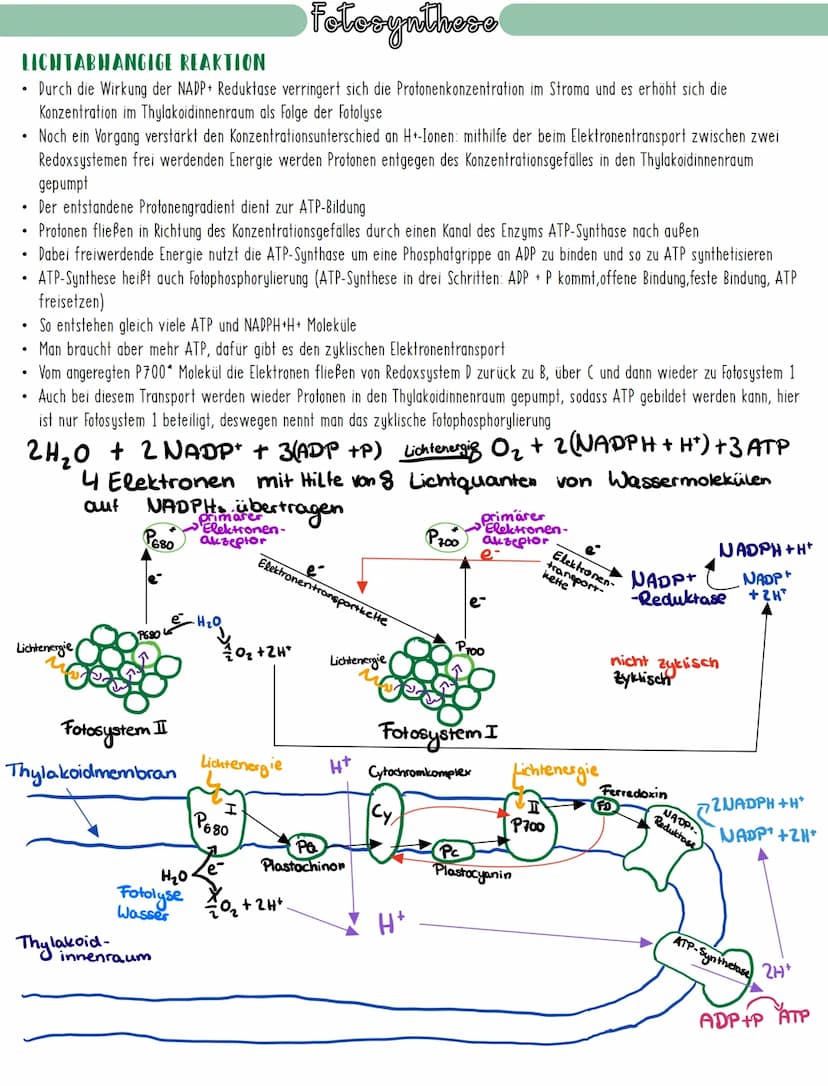 Fotosynthese
LICHTABHANGIGE REAKTION
• Durch die Wirkung der NADP+ Reduktase verringert sich die Protonenkonzentration im Stroma und es erhöht sich die
Konzentration im Thylakoidinnenraum als Folge der Fotolyse
• Noch ein Vorgang verstärkt den Konzentrationsunterschied an H+-Ionen: mithilfe der beim Elektronentransport zwischen zwei
Redoxsystemen frei werdenden Energie werden Protonen entgegen des Konzentrationsgefälles in den Thylakoidinnenraum
gepumpt
• Der entstandene Protonengradient dient zur ATP-Bildung
• Protonen fließen in Richtung des Konzentrationsgefälles durch einen Kanal des Enzyms ATP-Synthase nach außen
• Dabei freiwerdende Energie nutzt die ATP-Synthase um eine Phosphatgrippe an ADP zu binden und so zu ATP synthetisieren
• ATP-Synthese heißt auch Fotophosphorylierung (ATP-Synthese in drei Schritten: ADP + P kommt,offene Bindung,feste Bindung, ATP
freisetzen)
• So entstehen gleich viele ATP und NADPH+H+ Moleküle
• Man braucht aber mehr ATP, dafür gibt es den zyklischen Elektronentransport
• Vom angeregten P700* Molekül die Elektronen fließen von Redoxsystem D zurück zu B, über C und dann wieder zu Fotosystem 1
• Auch bei diesem Transport werden wieder Protonen in den Thylakoidinnenraum gepumpt, sodass ATP gebildet werden kann, hier
ist nur Fotosystem 1 beteiligt, deswegen nennt man das zyklische Fotophosphorylierung
2H₂O + 2NADP⁺ + 3(ADP +P) Lichtenergie O₂ + 2(NADPH + H⁺) +3ATP
4 Elektronen mit Hilfe von 8 Lichtquanten von Wassermolekülen
auf NADPH₂ übertragen
P680*
primärer
Elektronen-
akzeptor
P700*
primärer
Elektronen-
akzeptor
e⁻
e⁻
Elektronentransportkette
e⁻
Elektronen-
transport-
kette
NADP+
-Reduktase
NADPH+H⁺
NADP⁺
+2H⁺
e⁻
e⁻
P680
e⁻
H₂O
½O₂+2H⁺
Lichtenergie
Fotosystem II
P700
Lichtenergie
Fotosystem I
nicht zyklisch
zyklisch
Thylakoidmembran
Lichtenergie
H⁺
Cytochromkomplex
Lichtenergie
Ferredoxin
I
P680
PQ
Plastochinon
Cy
Pc
Plastocyanin
II
P700
FD
NADP+-
Reduktase
2NADPH+H⁺
NADP⁺+2H⁺
H₂O
e⁻
Fotolyse
Wasser
½O₂+2H⁺
H⁺
Thylakoid-
innenraum
ATP-Synthetase
2H⁺
ADP+P
ATP